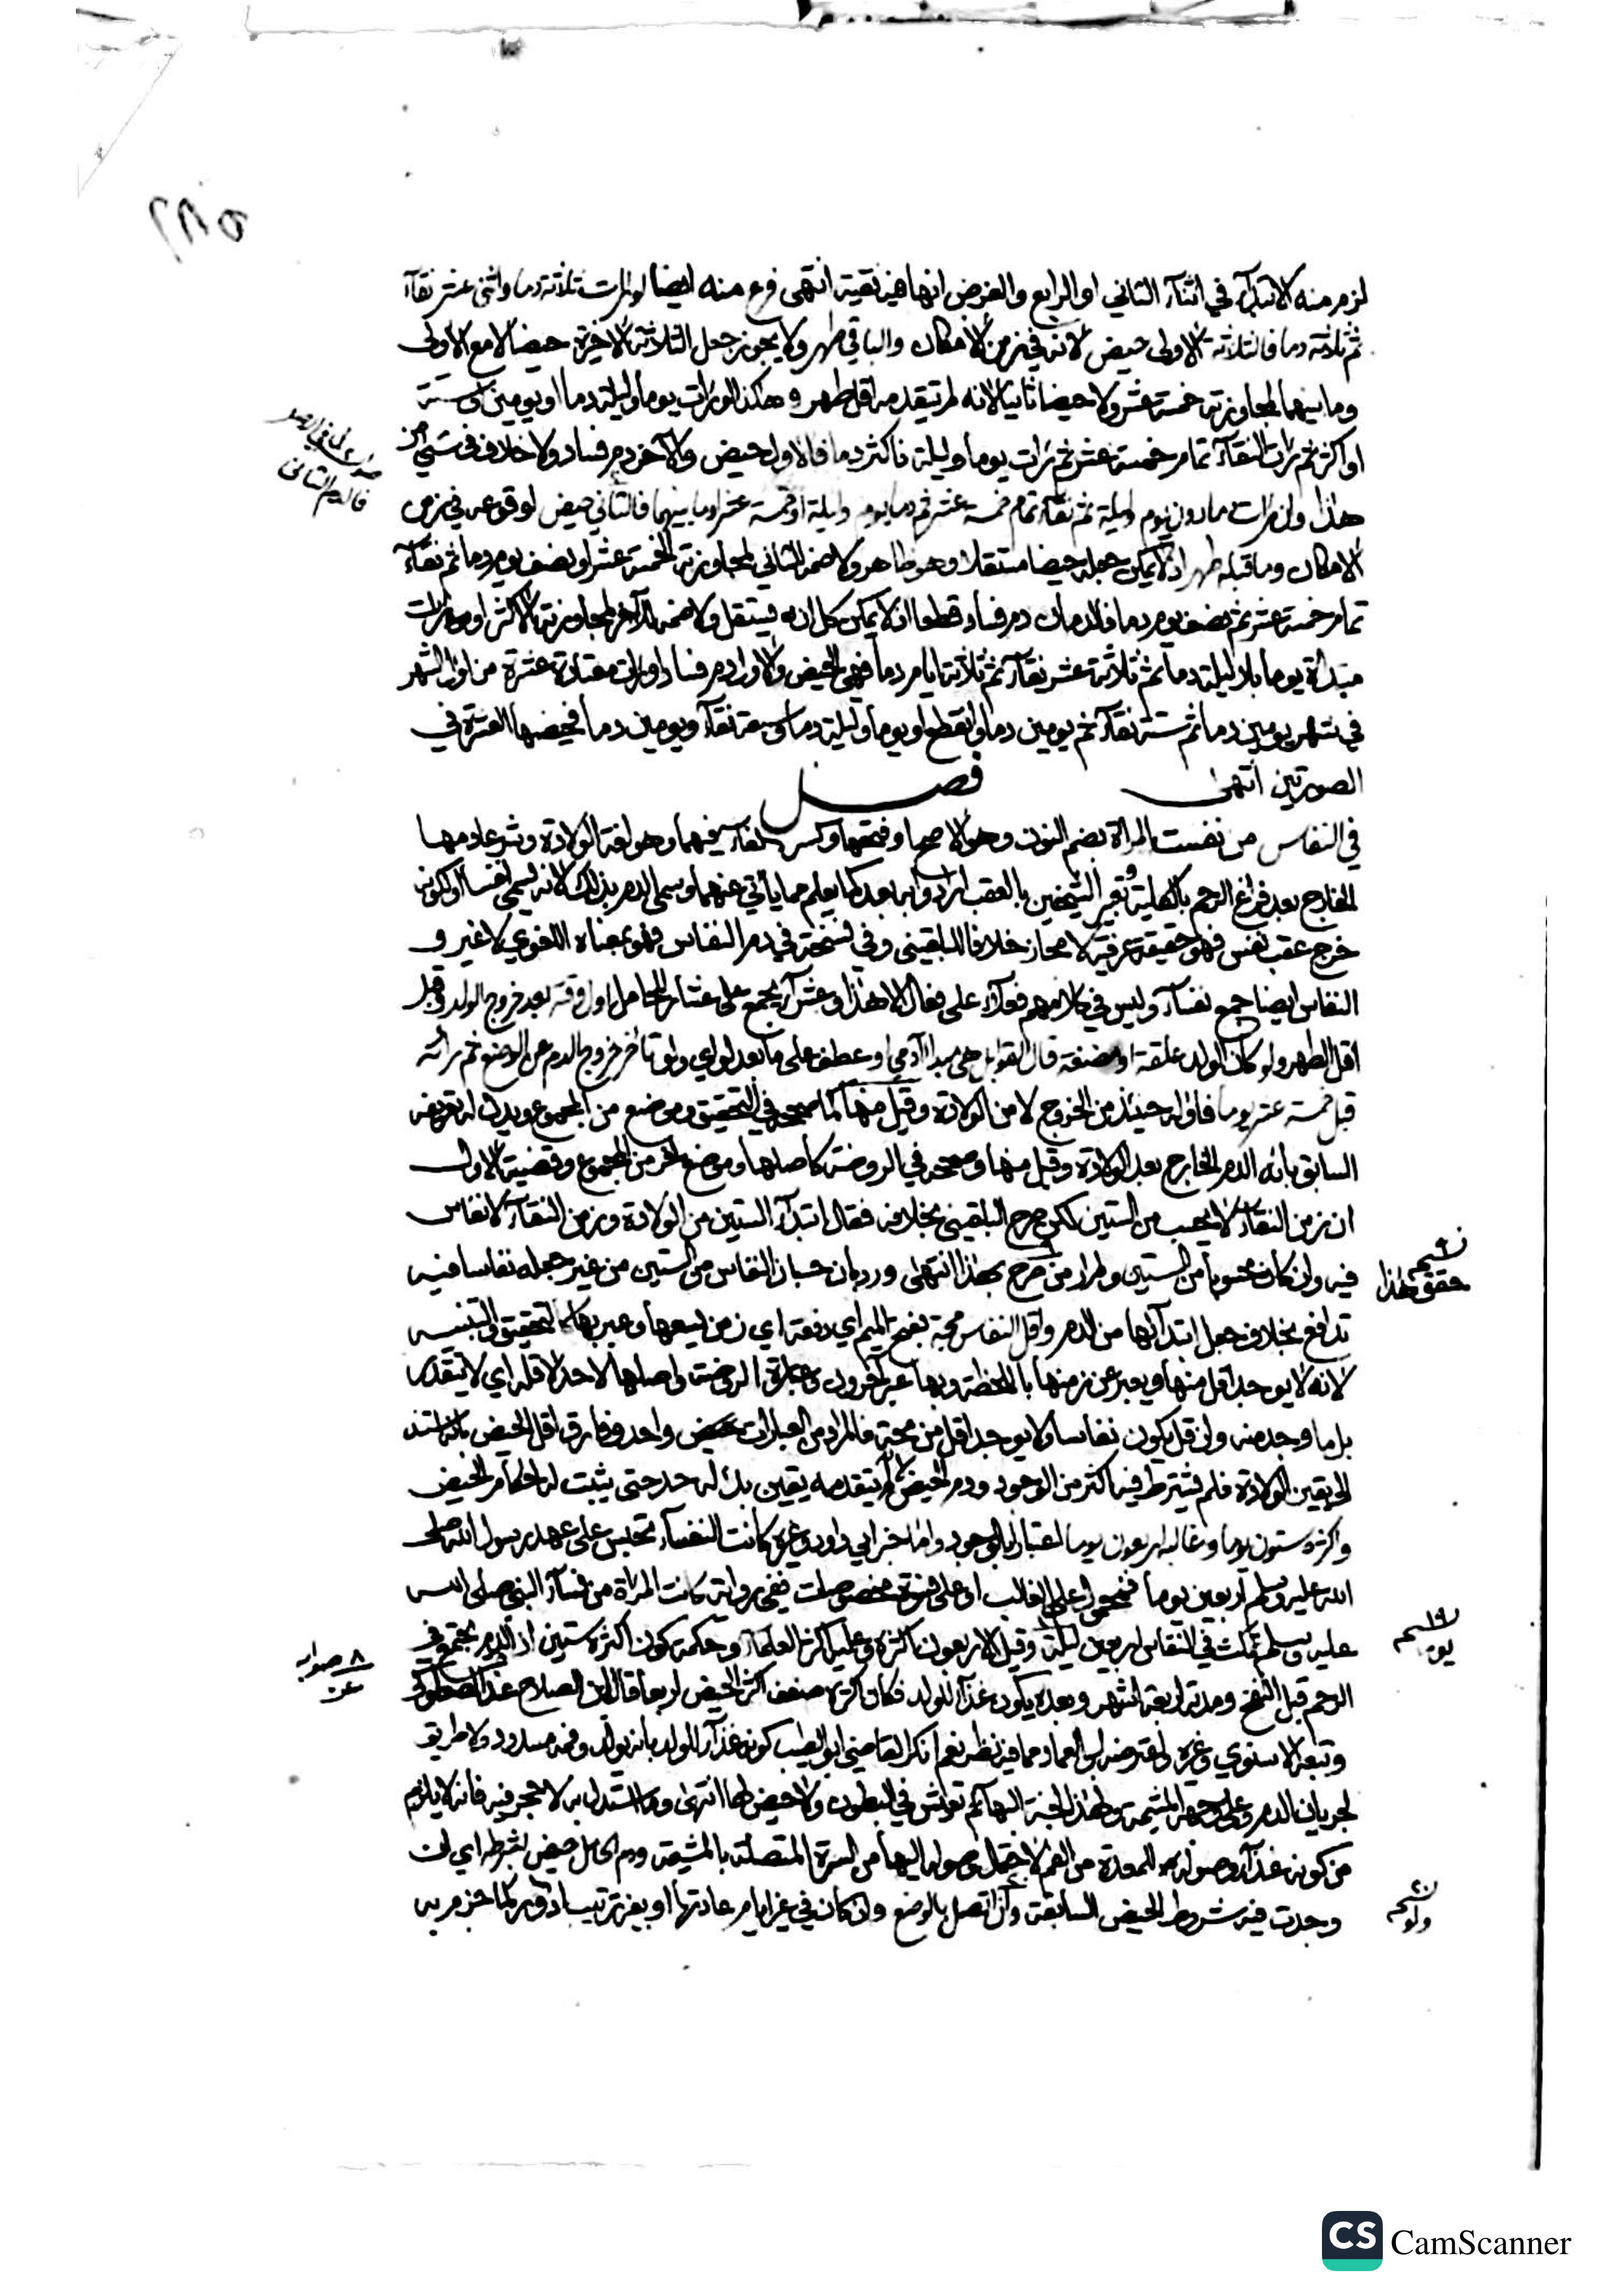 ٢٨٥
لزم منه الابتداء في اثناء الثاني او الرابع والغرض انها فيه نقية انتهى فرع منه ايضا لو رات ثلاثة دما واثنى عشر نقآء
ثم ثلاثة دما فالثلاثة الاولى حيض لانه في زمن الامكان والباقي طهر ولا يجوز جعل الثلاثة الاخيرة حيضا لا مع الاولى
وما بينهما لمجاوزته خمسة عشر ولا حيضا ثانيا لانه لم يتقدمه اقل طهر وهكذا لو رات يوما وليلة دما او يومين او ستة
او اكثر ثم رات النقآء تمام خمسة عشر ثم رات يوما وليلة فاكثر دما فالاول حيض والآخر دم فساد ولا خلاف في شيء من
هذا وان رات ما دون يوم وليلة ثم نقآء تمام خمسة عشر ثم دما يوم وليلة او خمسة عشر او ما بينهما فالثاني حيض لوقوعه في زمن
الامكان وما قبله طهر اذ لا يمكن جعله حيضا مستقلا وهو ظاهر ولا ضمه للثاني لمجاوزته الخمسة عشر او نصف يوم دما ثم نقآء
تمام خمسة عشر ثم نصف يوم دما فالدمان دم فساد قطعا اذ لا يمكن كل ان يستقل ولا ضمه للآخر لمجاوزته الاكثر او رات
مبتدأة يوما بلا ليلة دما ثم ثلاثة عشر نقآء ثم ثلاثة ايام دما فهي الحيض والاول دم فساد او رات معتادة عشرة من اول الشهر
في شهر يومين دما ثم ستة نقآء ثم يومين دما وانقطع او يوما وليلة دما وسبعة نقآء ويومين دما فحيضها العشرة في
الصورتين انتهى فصل
في النفاس من نفست المرأة بضم النون وهو الاصح او فتحها وكسر الفاء فيهما وهو لغة الولادة وشرعا دمها
الخارج بعد فراغ الرحم بالكلية وتعبير الشيخين بالعقب ارادوا به ما بعد كما يعلم مما يأتي عنهما وسمي الدم بذلك لانه يسمى نفسا او لكونه
خرج عقب نفس فهو حقيقة عرفية لا مجاز خلافا للبلقيني وفي نسخة في دم النفاس فهو بمعناه اللغوي لا غير و
النفاس ايضا جمع نفسآء وليس في كلامهم فعلاء على فعال الا هذا وعشرآء يجمع على عشار للحامل واول وقته بعد خروج الولد وقبل
اقل الطهر ولو كان الولد علقة او مضغة قال القوابل هي مبدا آدمي او عطف على ما بعد لو اي ولو تأخر خروج الدم عن الوضع ثم رأته
قبل خمسة عشر يوما فاوله حينئذ من الخروج لا من الولادة وقيل منها كما صححه في التحقيق وموضع من المجموع ويدل له تعريفه
السابق بانه الدم الخارج بعد الولادة وقيل منها وصححه في الروضة كاصلها وموضع آخر من المجموع وقضية الاول
ان زمن النقاء لا يحسب من الستين لكن صرح البلقيني بخلافه فقال ابتدآء الستين من الولادة وزمن النقآء لا نفاس
فيه وان كان محسوبا من الستين ولم ار من صرح بهذا انتهى ورد بان حسبان النفاس من الستين من غير جعله نفاسا فيه
تدافع بخلاف جعل ابتدآئها من الدم واقل النفاس مجة بفتح الميم اي دفعة اي زمن يسعها وعبر بها كالتحقيق والتنبيه
لانه لا يوجد اقل منها ويعبر عن زمنها باللحظة وبها عبر آخرون وعبارة الروضة واصلها لا حد لاقله اي لا يتقدر
بل ما وجد منه وان قل يكون نفاسا ولا يوجد اقل من مجة فالمراد من العبارات واحد وفارق اقل الحيض بانه استند
الى يقين الولادة فلم يشترط فيه اكثر من الوجود ودم الحيض لم يتقدمه يقين يدل له حد حتى يثبت له احكام الحيض
واكثره ستون يوما وغالبه اربعون يوما اعتبارا بالوجود واما خبر ابي داود وغيره كانت النفساء تجلس على عهد رسول الله صلى
الله عليه وسلم اربعين يوما فمحمول على الغالب او على نسوة مخصوصات ففي رواية كانت المرأة من نسآء النبي صلى الله
عليه وسلم تمكث في النفاس اربعين ليلة وقيل الاربعون اكثره وعليه اكثر العلمآء وحكمة كون اكثره ستين ان الدم يجتمع في
الرحم قبل النفخ ومدته اربعة اشهر وبعده يكون غذآء للولد فكان اكثره ضعف اكثر الحيض اربعا قال ابن الصلاح
وتبعه الاسنوي وغيره واعترضه ابن العماد بما فيه نظر نعم انكر القاضي ابو الطيب كونه غذآء للولد بانه يولد وفمه مسدود ولا طريق
لجريان الدم وعلى وجهه المشيمة ولهذا اجنة البهائم تعيش في البطون ولا حيض لها انتهى وما استدل به لا حجة فيه فانه لا يلزم
من كونه غذآء وصوله الى المعدة من الفم لاحتمال وصوله اليها من السرة المتصلة بالمشيمة ودم الحامل حيض بشرطه اي ان
وجدت فيه شروط الحيض السابقة وان اتصل بالوضع وان كان في غير ايام عادتها او بغير ترتيب ادوار كما جزم به
فالدم الثاني
حقق هذا
صوابه
CS CamScanner